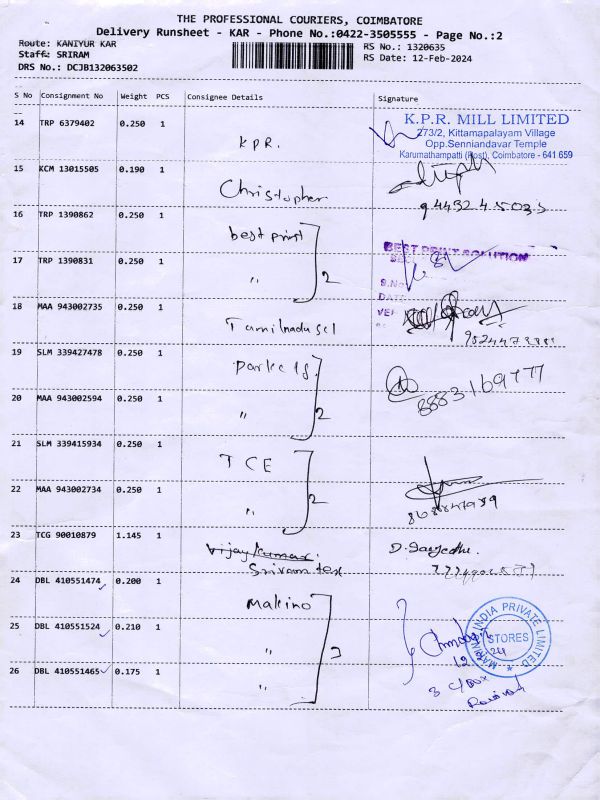 THE PROFESSIONAL COURIERS, COIMBATORE
Delivery Runsheet - KAR - Phone No.:0422-3505555 - Page No.:2
Route: KANIYUR KAR
RS No.: 1320635
Staff: SRIRAM
RS Date: 12-Feb-2024
DRS No.: DCJB132063502
S No Consignment No Weight PCS Consignee Details Signature
14 TRP 6379402 0.250 1 KPR.
K.P.R. MILL LIMITED
273/2, Kittamapalayam Village
Opp.Senniandavar Temple
Karumathampatti (Post), Coimbatore - 641 659
15 KCM 13015505 0.190 1 Christopher
16 TRP 1390862 0.250 1 best print
BEST PRINT SOLUTION
17 TRP 1390831 0.250 1 " 2
S.No
DATE
18 MAA 943002735 0.250 1 Tamilnadu sel
19 SLM 339427478 0.250 1
8883169777
20 MAA 943002594 0.250 1 " 2
21 SLM 339415934 0.250 1 TCE
22 MAA 943002734 0.250 1 " 2
23 TCG 90010879 1.145 1 Vijaykumar
Sriram tex
24 DBL 410551474 0.200 1 Makino
MAKINO INDIA PRIVATE LIMITED
STORES
25 DBL 410551524 0.210 1 " 3
12
24
26 DBL 410551465 0.175 1 "
3